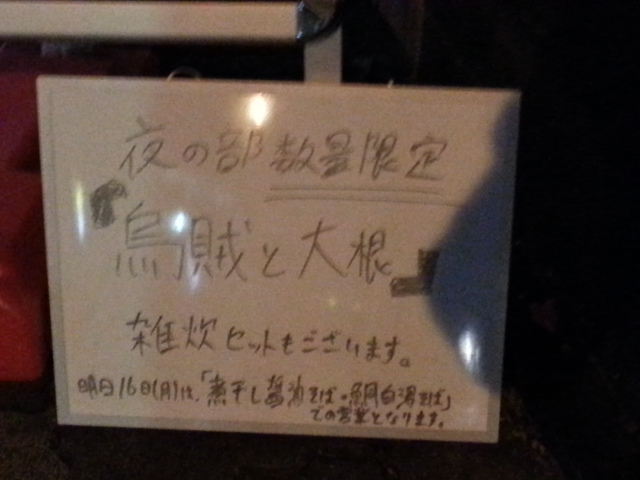 夜の部数量限定
『烏賊と大根』
雑炊セットもございます。
明日16日(月)は、「煮干し醤油そば・鯛白湯そば」
での営業となります。